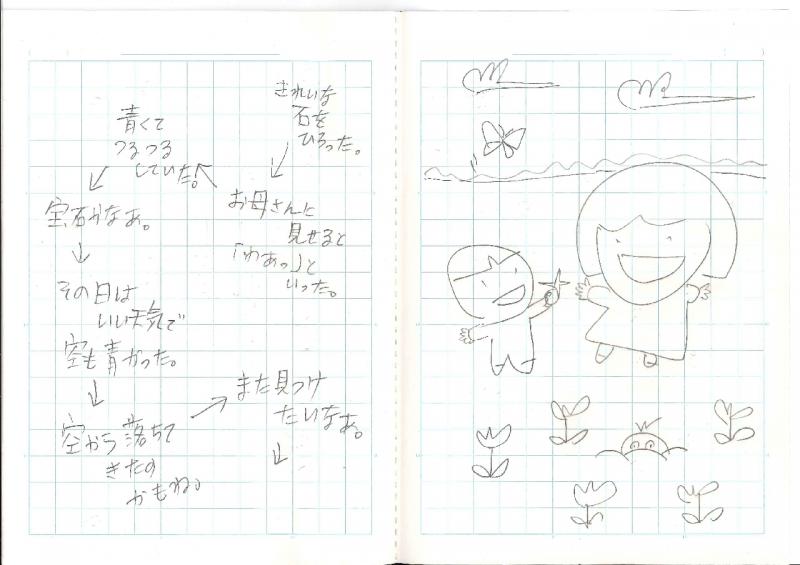 きれいな
石を
ひろった。
お母さんに
見せると
「わあっ」と
いった。
青くて
つるつる
していた。
宝石かなぁ。
その日は
いい天気で
空も青かった。
空から落ちて
きたの
かもね。
また見つけ
たいなぁ。